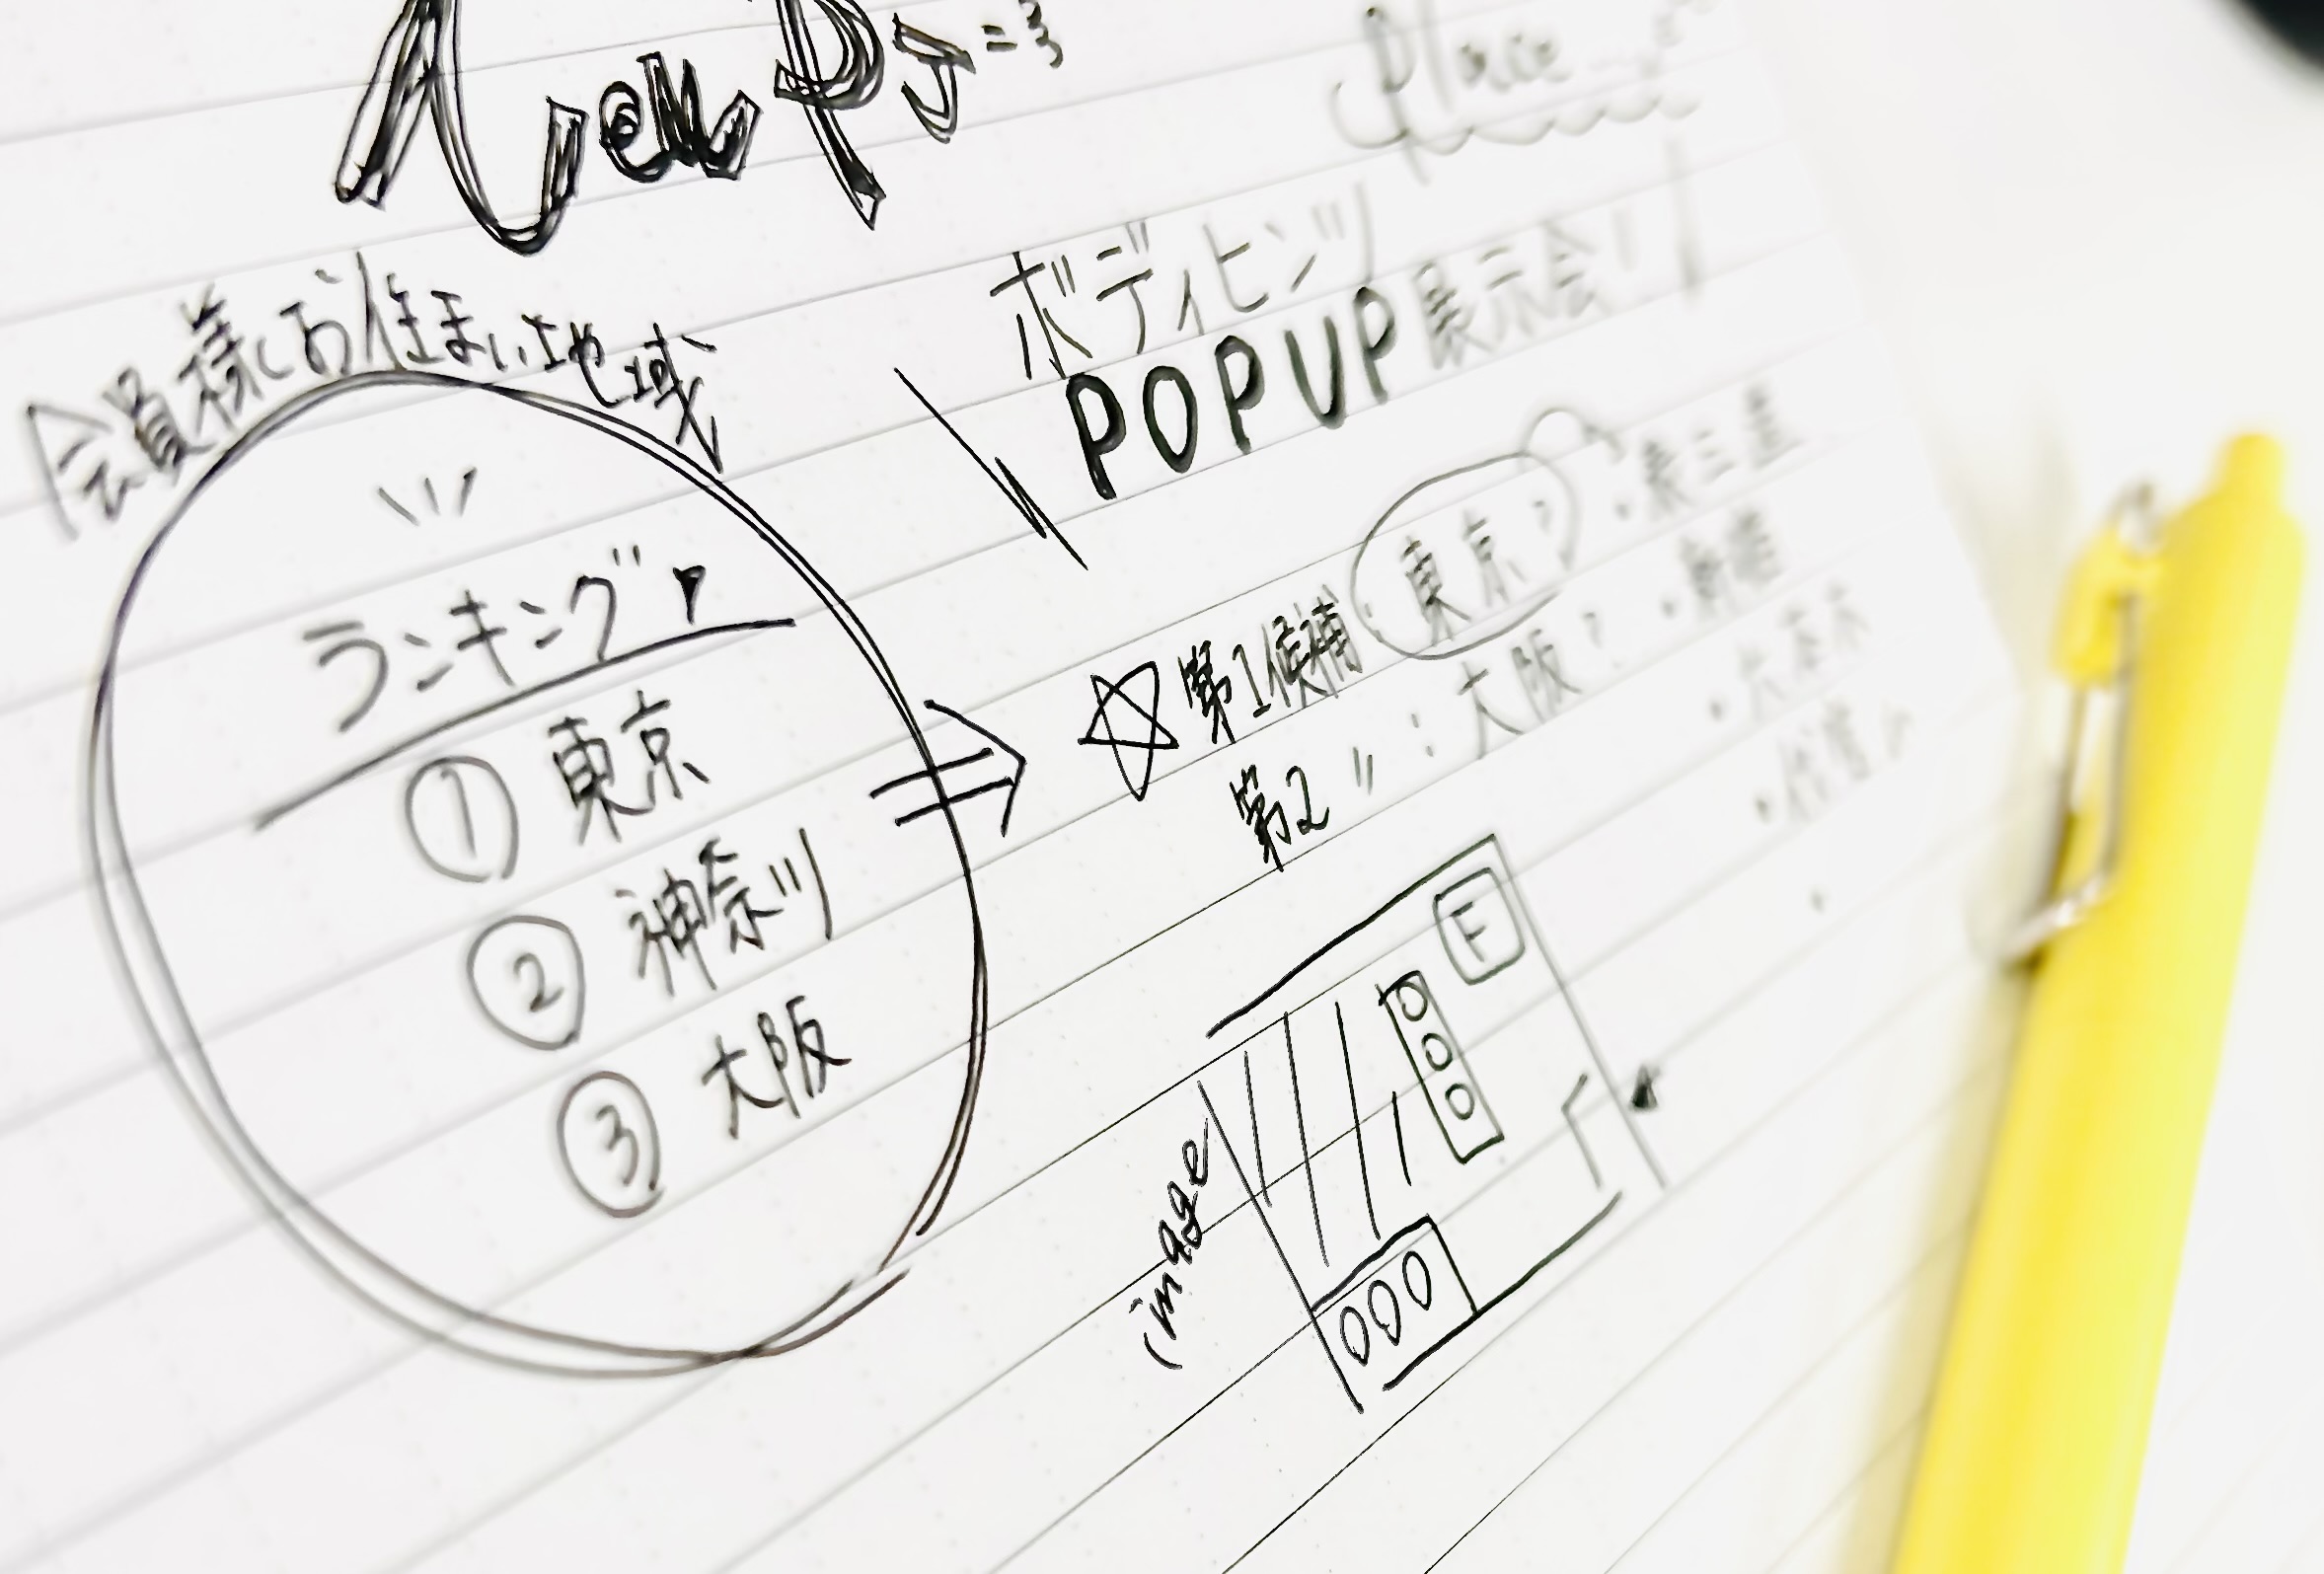 place
会員様お住まい地域
ランキング
① 東京
② 神奈川
③ 大阪
ボディヒンツ
POPUP 展示会!
☆ 第1候補: 東京?
第2 〃 : 大阪?
・表三道
・六本木
・代官山
F
000
000
image